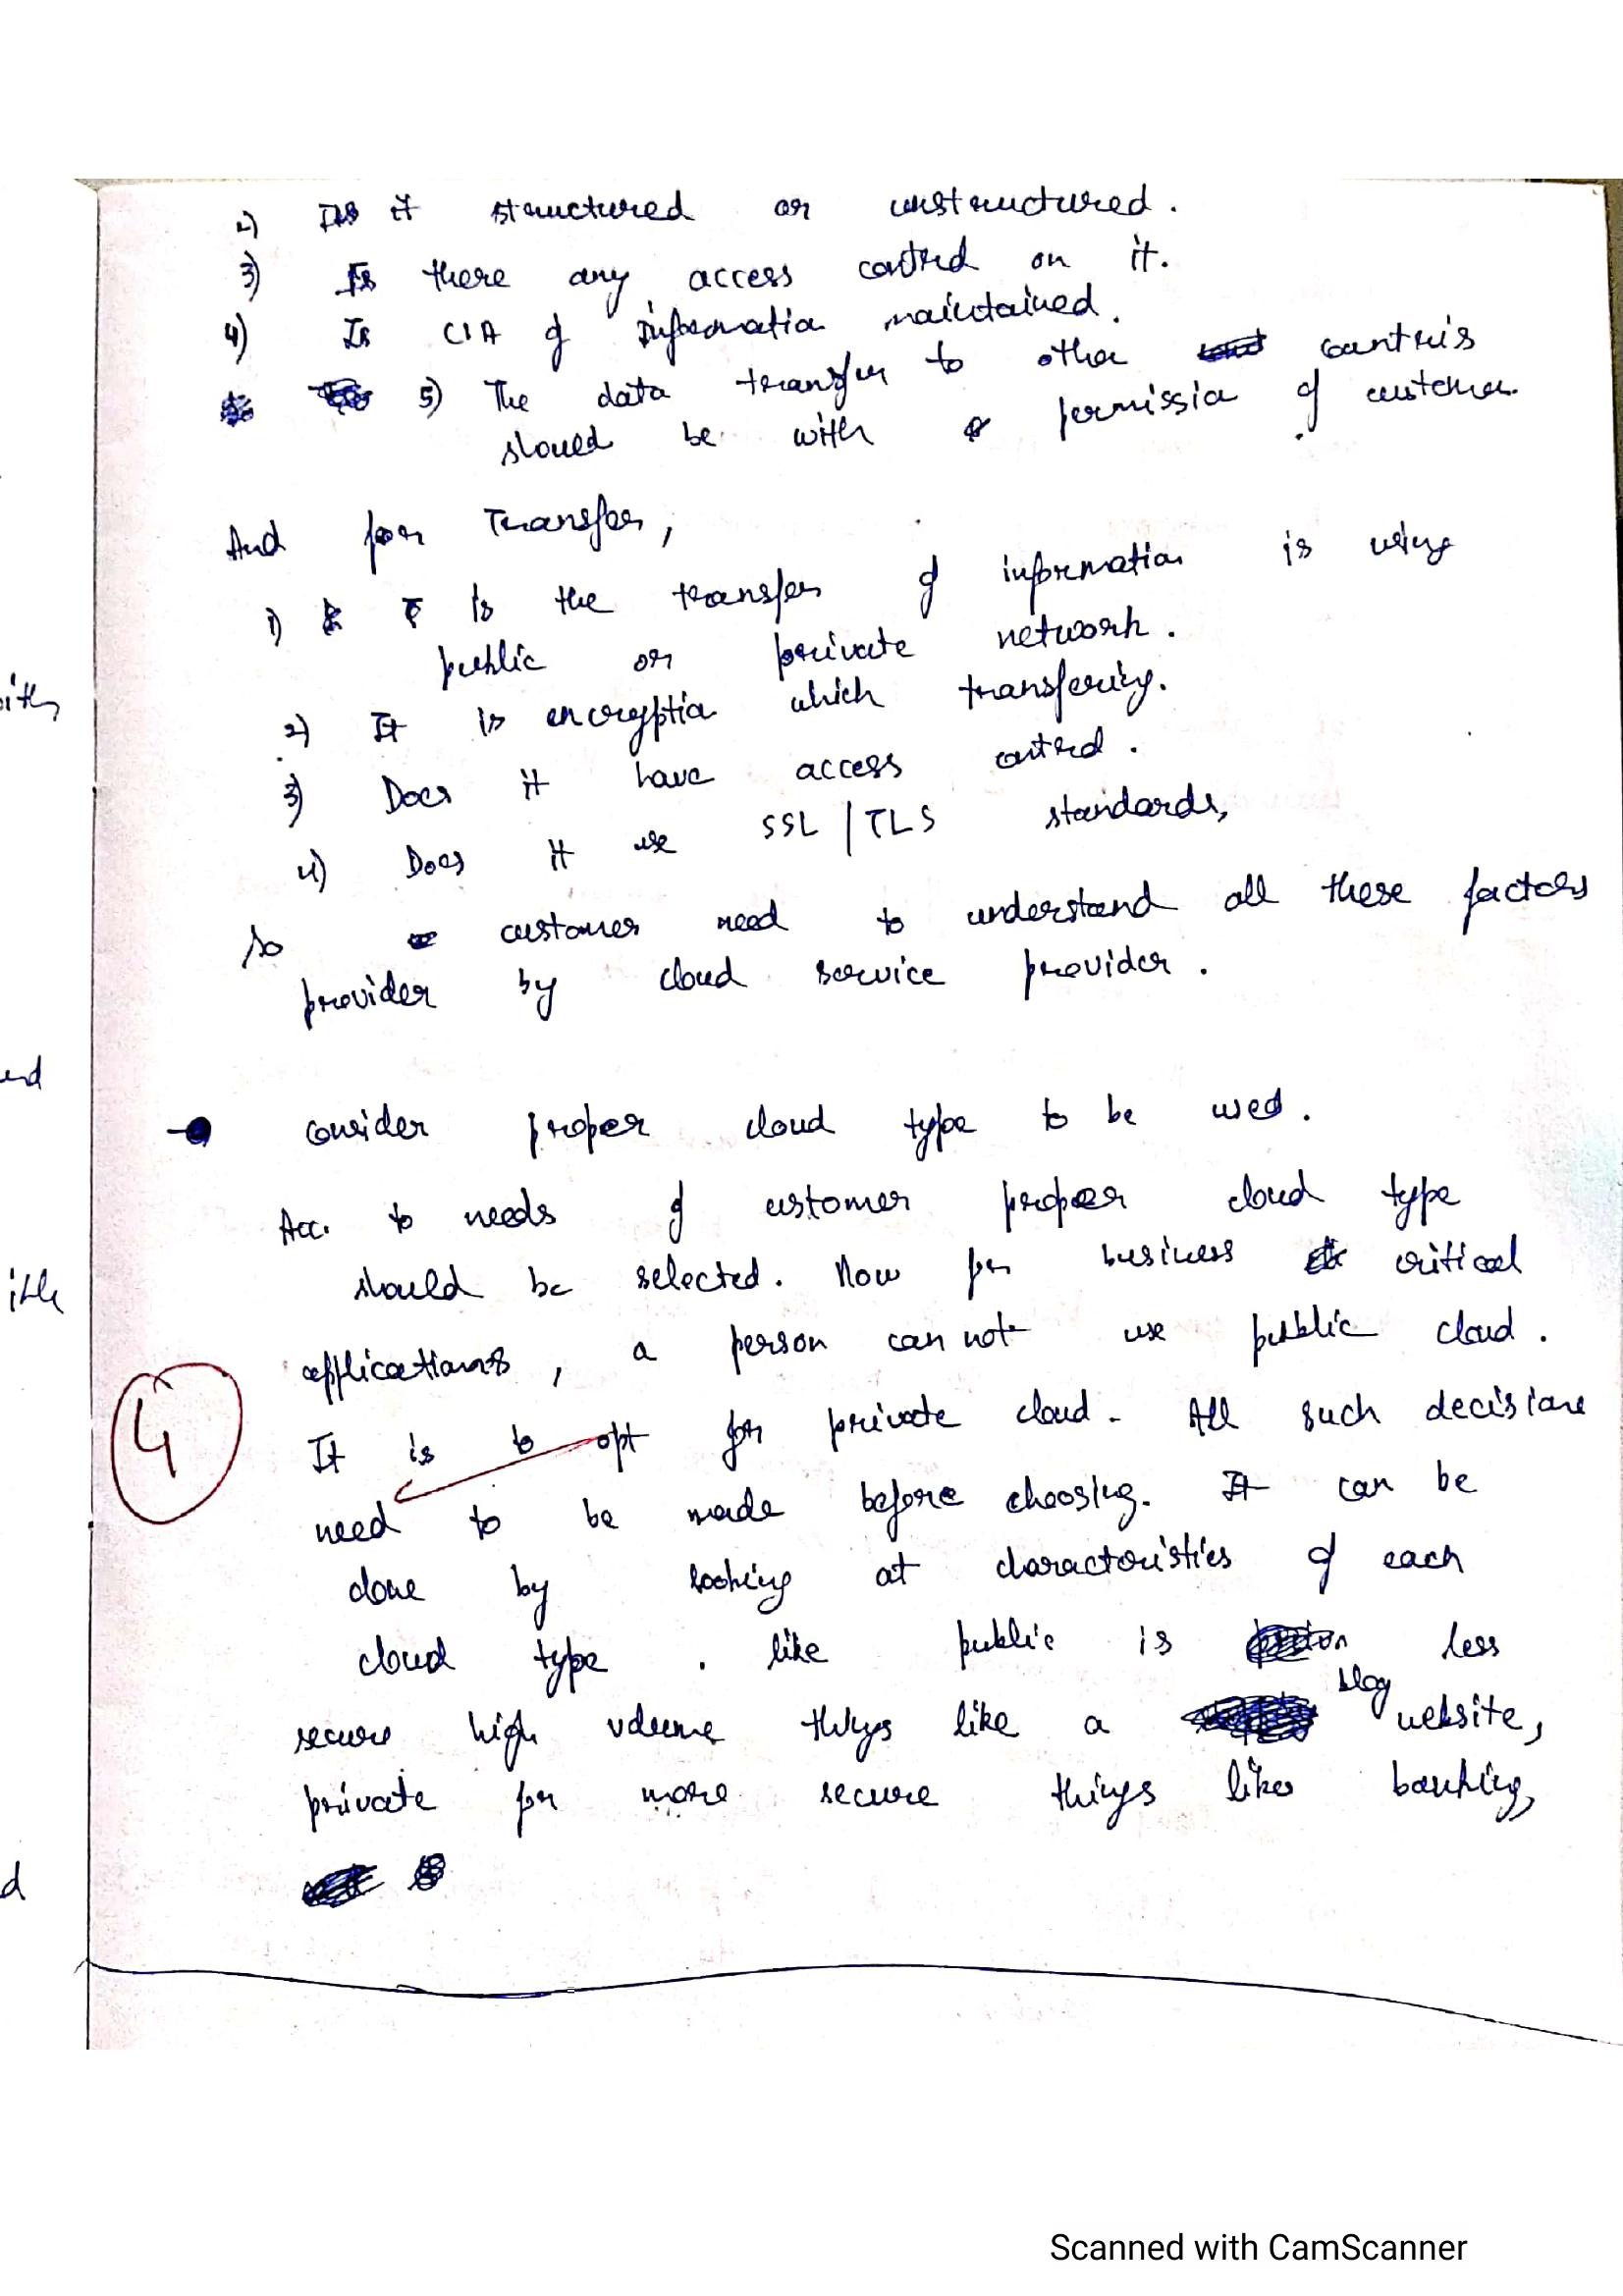 2) Is it structured or unstructured.
3) Is there any access control on it.
4) Is CIA of information maintained.
5) The data transfer to other countris
should be with permission of customer.
And for Transfer,
1) Is the transfer of information is using
public or private network.
2) It is encryption which transfering.
3) Does it have access control.
4) Does it use SSL/TLS standards,
so customer need to understand all these factors
provider by cloud service provider.
consider proper cloud type to be used.
Acc. to needs of customer proper cloud type
should be selected. Now for business critical
applications, a person can not use public cloud.
4
It is to opt for private cloud. All such decisions
need to be made before choosing. It can be
done by looking at characteristics of each
cloud type. like public is less
secure high volume things like a blog website,
private for more secure things like banking,
ith
end
ible
d
Scanned with CamScanner